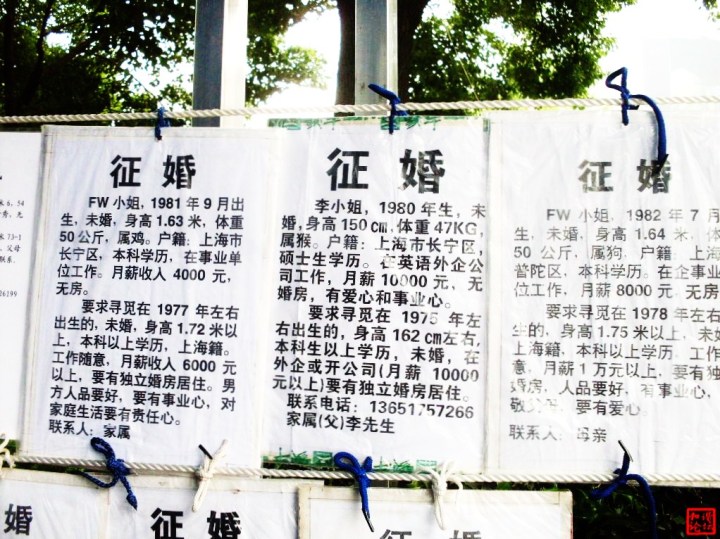 6、54
无
73-1
父母
联系。
06199
征 婚
FW 小姐，1981 年 9 月出
生，未婚，身高 1.63 米，体重
50 公斤，属鸡。户籍：上海市
长宁区，本科学历，在事业单
位工作。月薪收入 4000 元，
无房。
要求寻觅在 1977 年左右
出生的，未婚，身高 1.72 米以
上，本科以上学历，上海籍。
工作随意，月薪收入 6000 元
以上，要有独立婚房居住。男
方人品要好，要有事业心，对
家庭生活要有责任心。
联系人：家属
征 婚
李小姐，1980 年生，未
婚，身高 150 cm，体重 47KG，
属猴。户籍：上海市长宁区，
硕士生学历。在英语外企公
司工作，月薪 10000 元，无
婚房，有爱心和事业心。
要求寻觅在 1975 年左
右出生的，身高 162 cm左右，
本科生以上学历，未婚，在
外企或开公司(月薪 10000
元以上)要有独立婚房居住。
联系电话：13651757266
家属(父)李先生
征 婚
FW 小姐，1982 年 7 月
生，未婚，身高 1.64 米，体
50 公斤，属狗，户籍：上海
普陀区，本科学历。在企事业
位工作，月薪 8000 元，无房
要求寻觅在 1978 年左右
生的，身高 1.75 米以上，未
上海籍，本科以上学历，工作
意，月薪 1 万元以上，要有
婚房，人品要好，有事业心，
敬父母，要有爱心。
联系人：母亲
婚
征 婚
征 婚